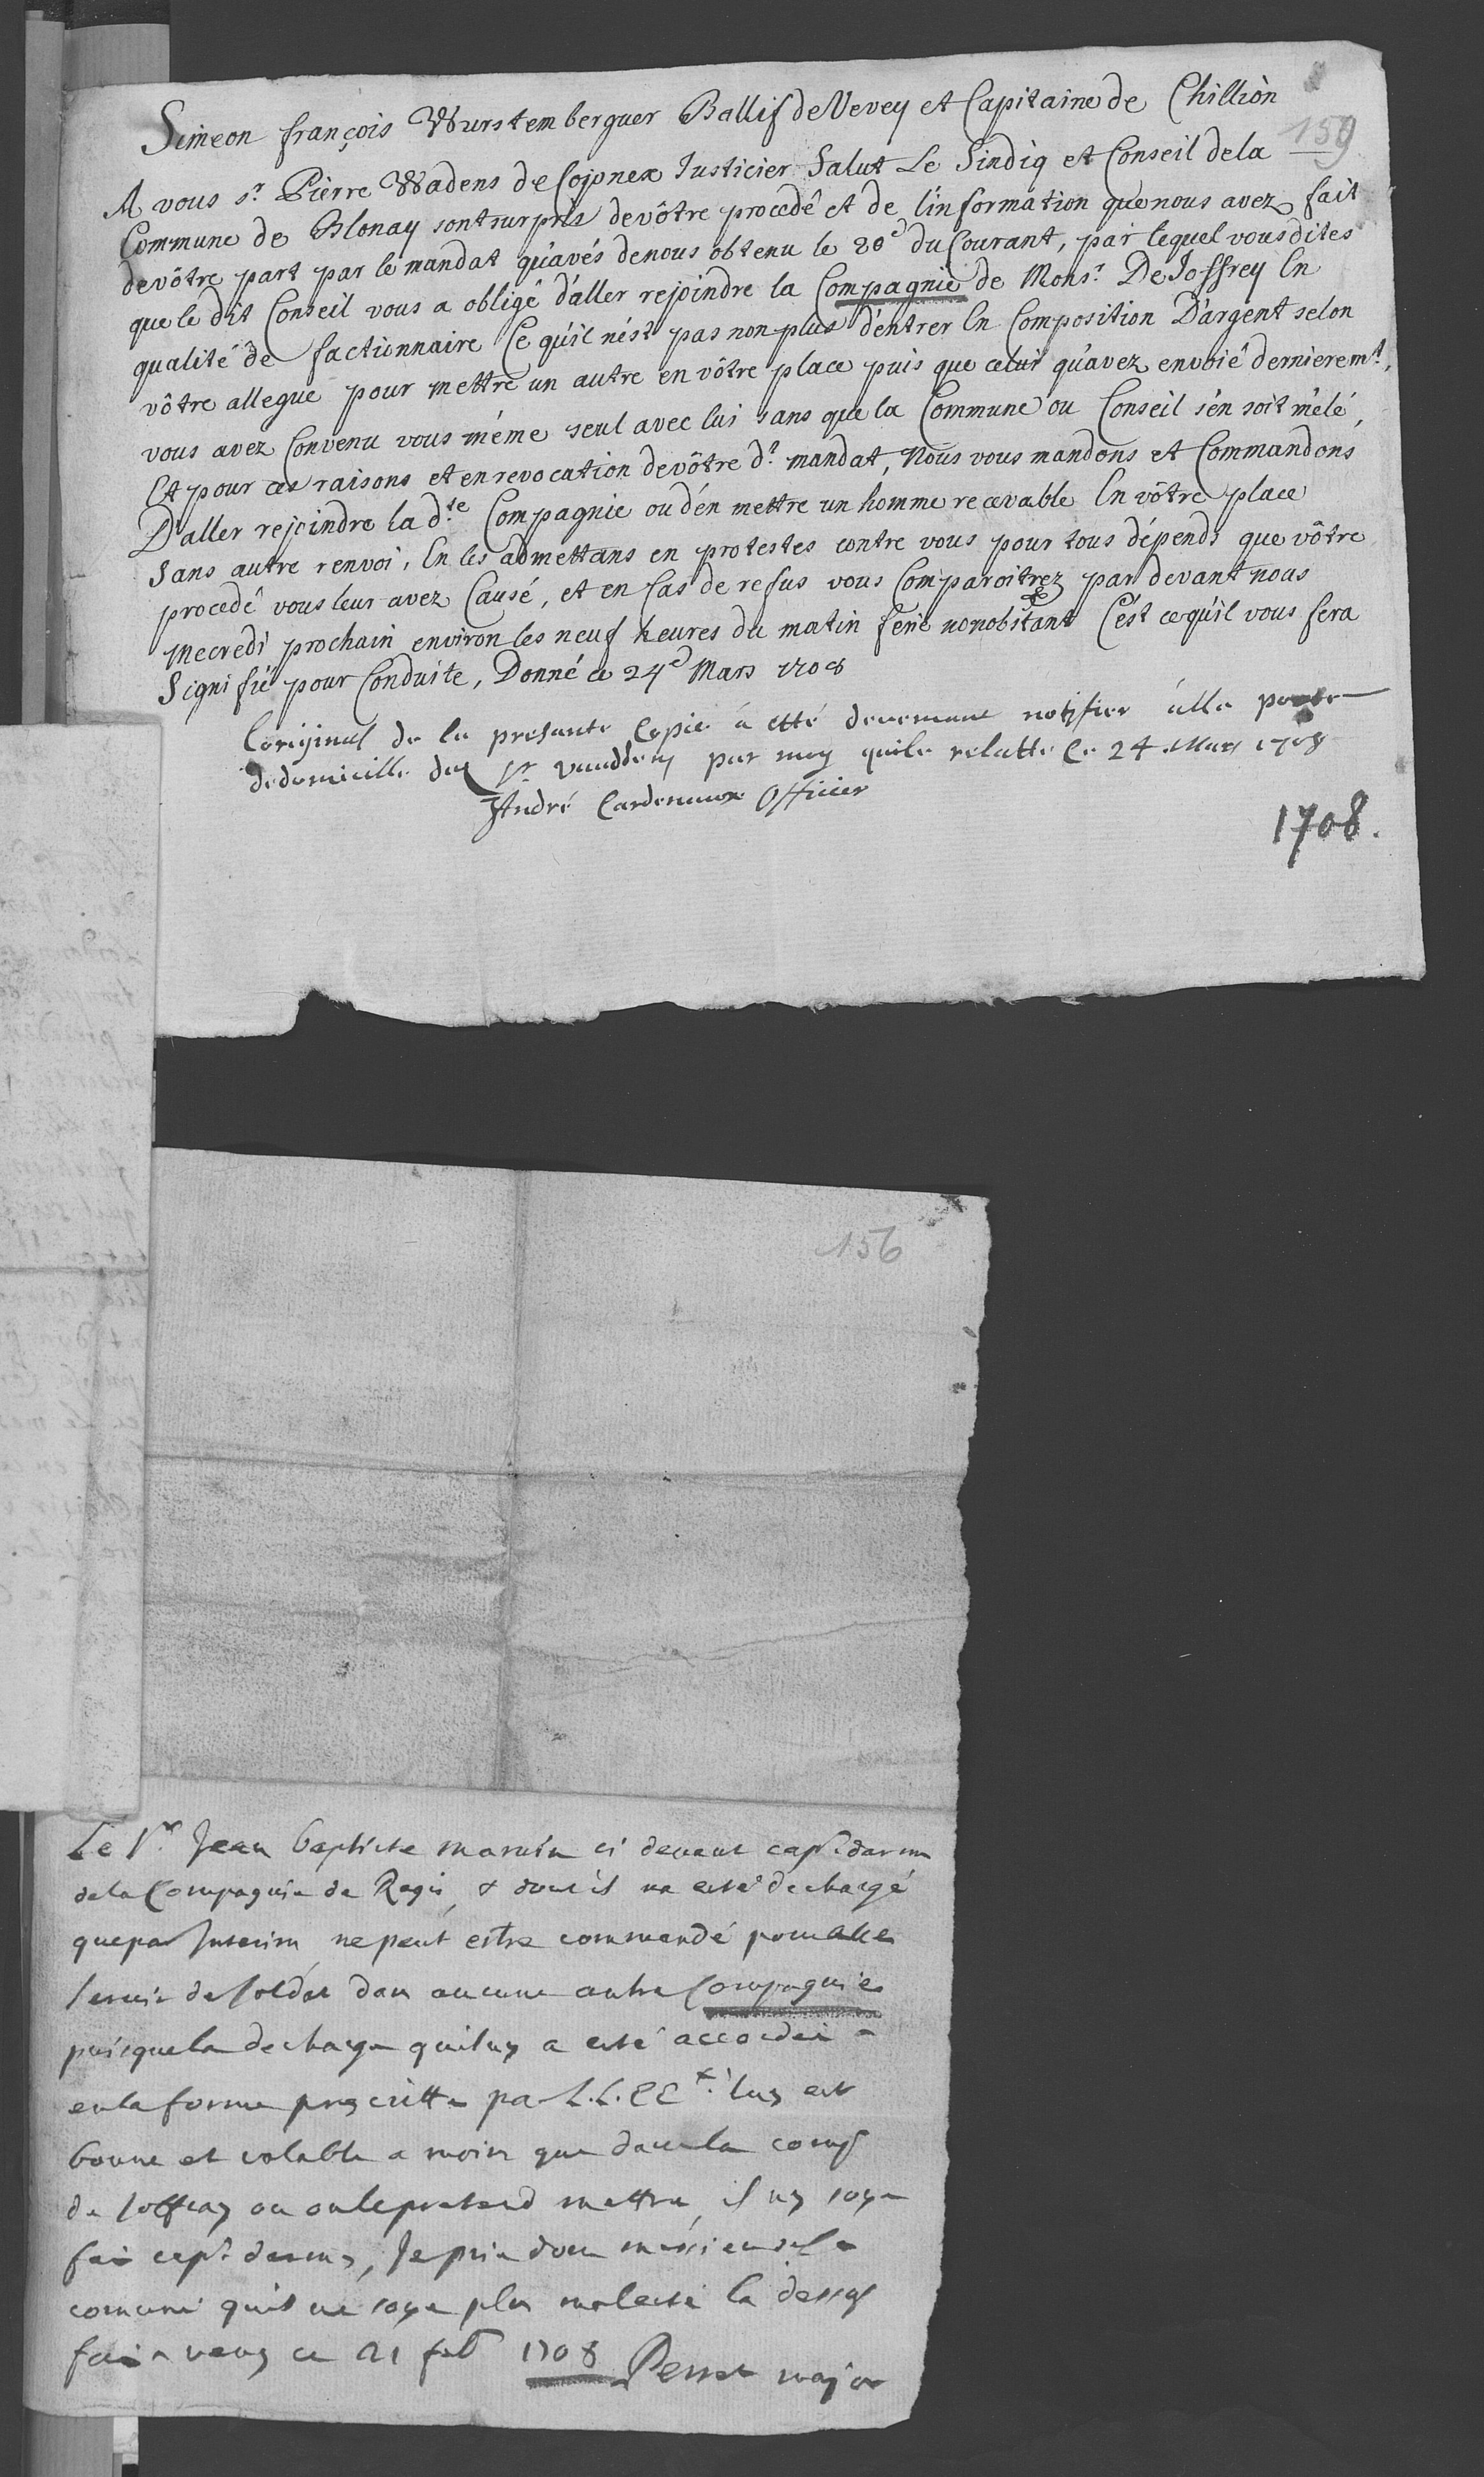 Simeon françois Wurstemberguer Ballif de Vevey et Capitaine de Chillion
159
A vous sr. Pierre Wadens de Cojonex Justicier Salut Le Sindiq et Conseil de la
Commune de Blonay sont surpris de vôtre procedé et de l'information que nous avez fait
de vôtre part par le mandat qu'avés de nous obtenu le 20e du Courant, par lequel vous dites
que le dit Conseil vous a obligé d'aller rejoindre la Compagnie de Monsr. De Joffrey En
qualité de factionnaire Ce qu'il n'ést pas non plus d'entrer En Composition D'argent selon
vôtre allegue pour mettre un autre en vôtre place puis que celui qu'avez envoié dernieremt.,
vous avez Convenu vous méme seul avec lui sans que la Commune ou Conseil s'en soit mêlé,
Et pour ces raisons et en revocation de vôtre dt. mandat, Nous vous mandons et Commandons
D'aller rejoindre la dte. Compagnie ou d'én mettre un homme recevable En vôtre place
Sans autre renvoi, En les admettans en protestes contre vous pour tous dépends que vôtre
procedé vous leur avez Causé, et en Cas de refus vous Comparoitrez par devant nous
Mecredi prochain environ les neuf heures du matin ferie nonobstant C'ést ce qu'il vous sera
Signifié pour Conduite, Donné ce 24e Mars 1708
L'original de la presante Copie a etté deuemant notifier alla porte
de domicille du sr par moy quile relatte Ce 24 Mars 1708
André Cardenaux Officier
1708.
156
Le Sr. Jean Baptiste Mamin ci devant capt. darme
de la Compagnie de Regis, & dont il na esté dechargé
que par Interim ne peut estre commandé pour aller
servir de soldat dans aucune autre Compagnie
puisque la decharge qui luy a esté accordée
en la forme prescritte par L.L.EEx. luy est
bonne et valable a moins que dans la comp
de Joffrey ou on le pretend mettre, il ny soye
fait capt. darmes, Je prie donc messieurs de la
comune quil ne soye plus molesté la dessus
fait a vevey ce 21 feb 1708 Perret major